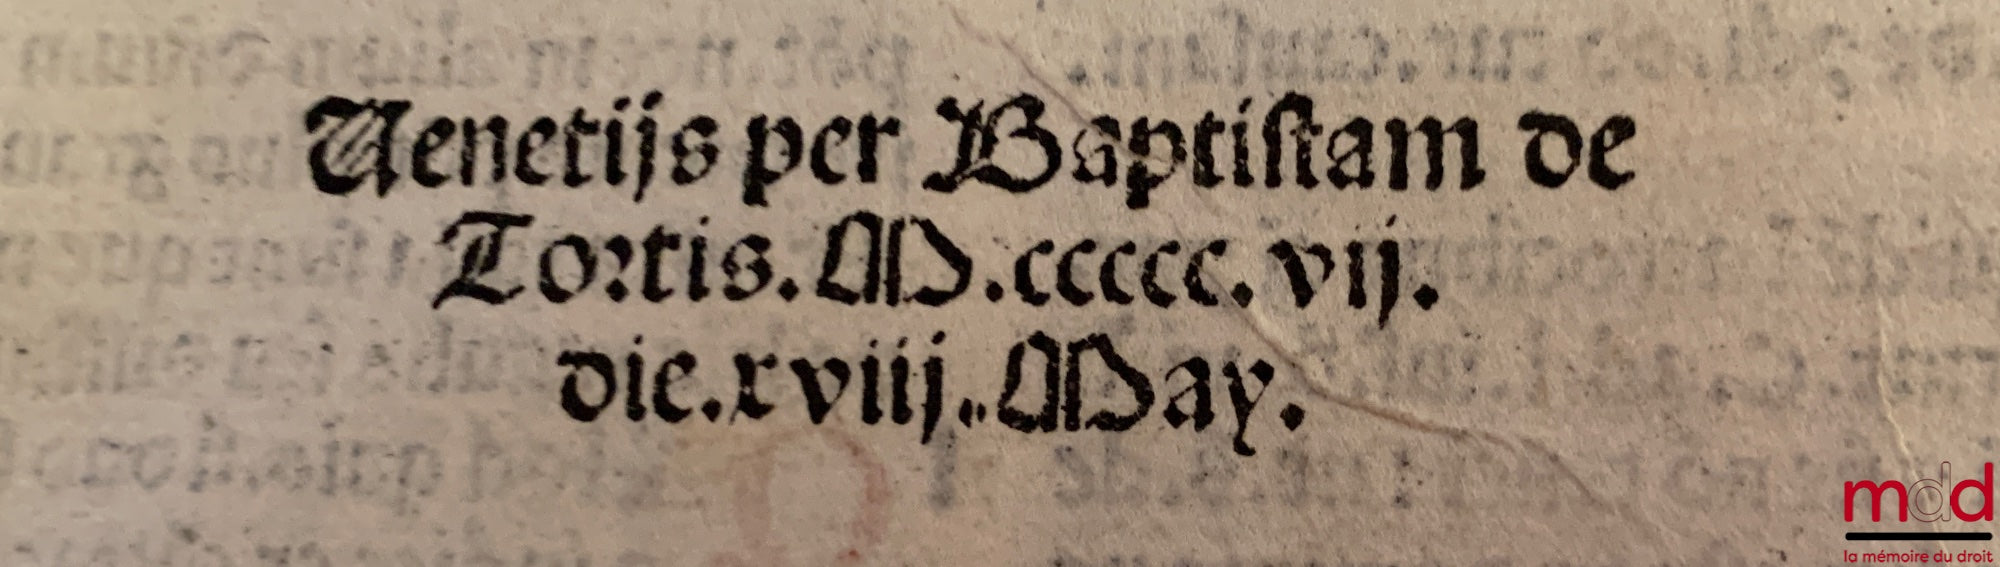 Uenetijs per Baptistam de
Tortis. M.ccccc.vij.
die.xviij. May.
mdd
la mémoire du droit